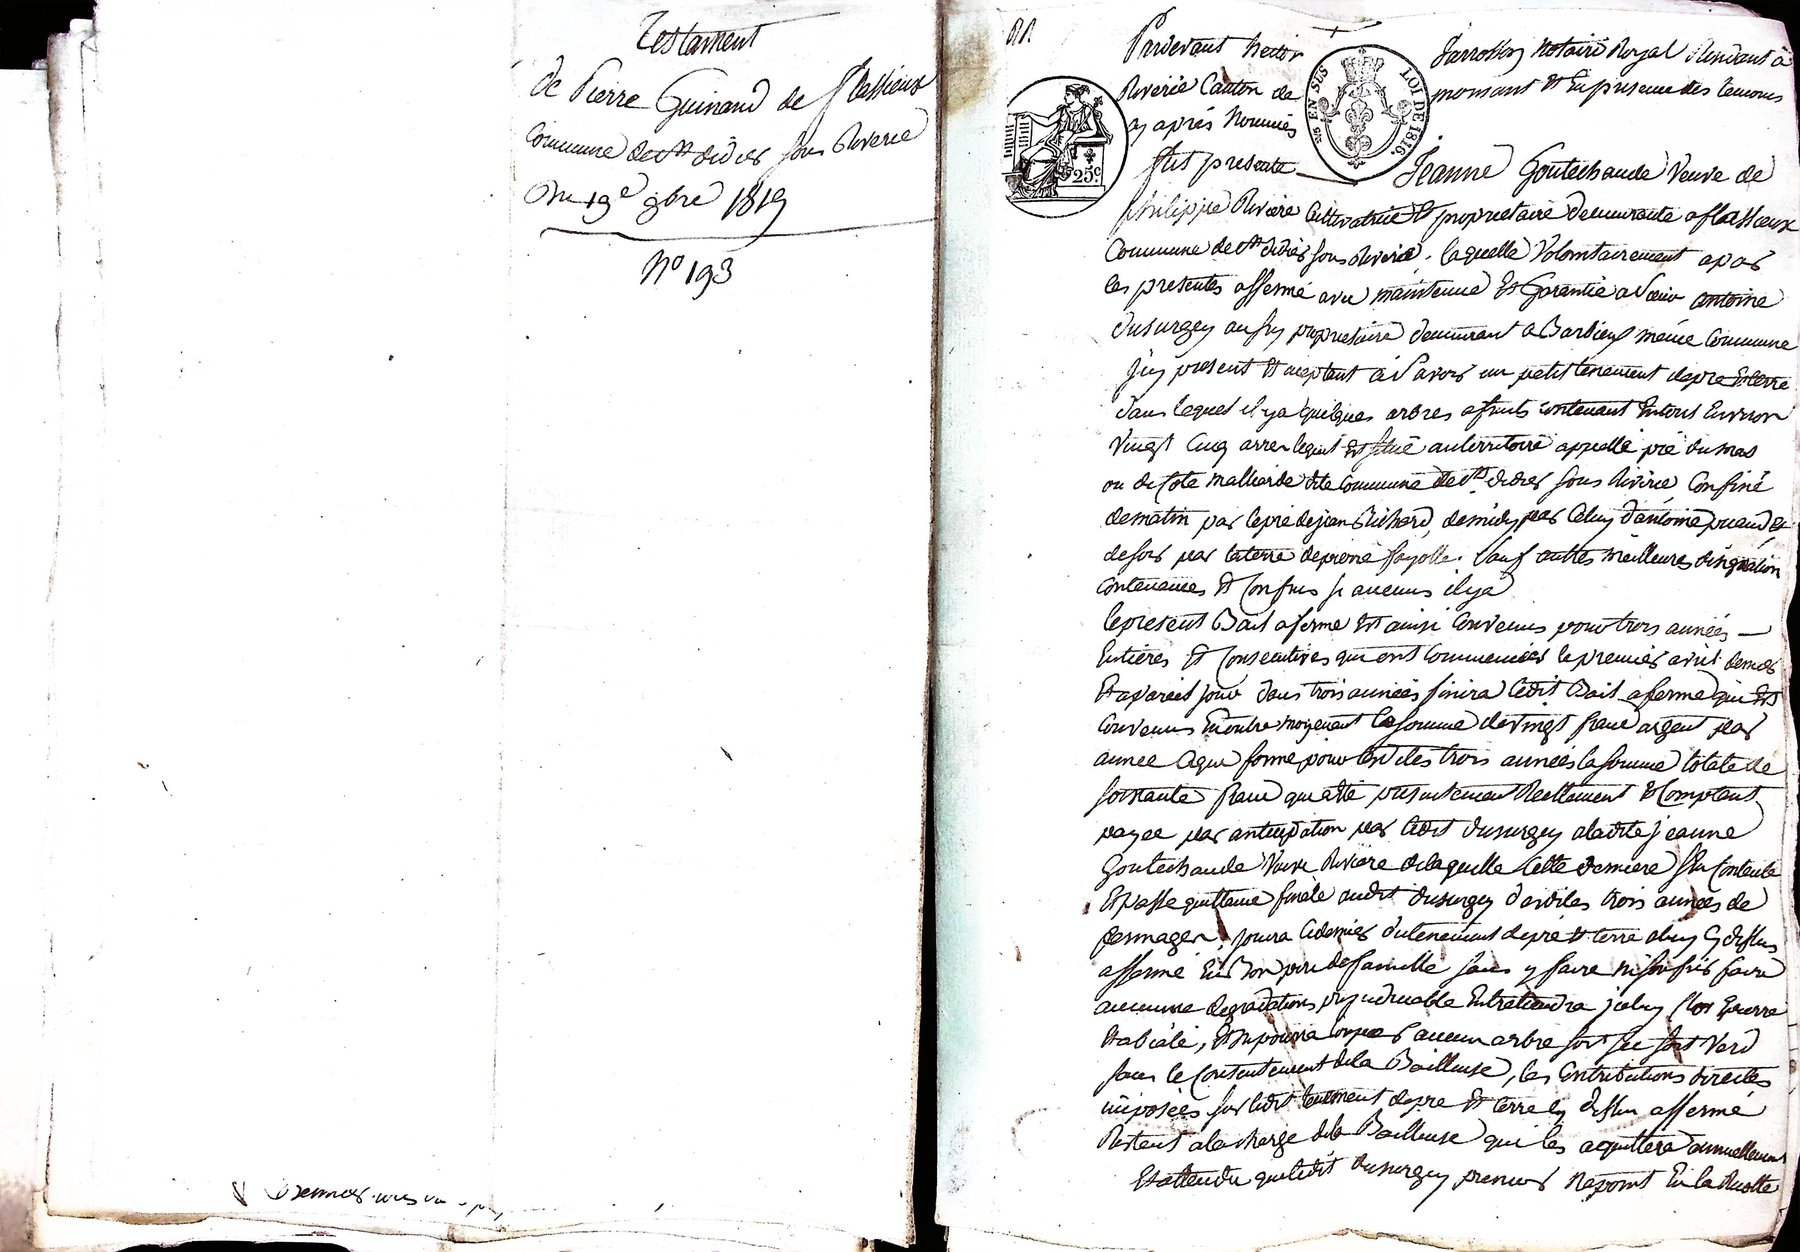 Testament
de Pierre Guinand de flassieux
Commune de st didier sous Riverie
Du 19e 9bre 1819
No 193
Pardevant hector Jarrosson Notaire Royal Residant à
Riverie Canton de mornant Et En presence des témoins
cy après Nommés
EN SUS LOI DE 1816.
25c
fut presente
Jeanne Goutechaude Veuve de
philippe Riviere Cultivatrice Et proprietaire demeurante a flassieux
Commune de st didier sous Riverie, laquelle Volontairement a par
les presentes affermé avec maintenue Et Garantie a sieur antoine
dusurgey proprietaire demeurant a Barbieux même Commune
Icy present Et aceptant à Savoir un petit tenement de pré Et terre
dans lequel il y a quelques arbres a fruits contenant En tout Environ
Vingt Cinq ares lequel Est situé au territoire appellé pré du mas
ou de Cote malliarde dite Commune de st didier sous Riverie Confiné
de matin par le pré de jean Richard, de midy par Celuy d'antoine Et
de soir par la terre de pierre fayolle. Sauf autres meilleures désignation
Contenances Et Confins si aucuns il y a
le present Bail a ferme Est ainsi Convenu pour trois années
Entières Et Consecutives qui ont Commencées le premier avril dernier
Et a pareil jour dans trois années finira ledit Bail a ferme qui Est
Convenu En outre moyenant la somme de Vingt franc argent par
année Ce qui forme pour lesdites trois années la somme totale de
soixante franc qui a été presentement Reellement Et Comptant
payée par anticipation par ledit dusurgey a ladite jeanne
Goutechaude Veuve Riviere de laquelle Cette derniere s'En Contente
Et passe quittance finale audit dusurgey desdites trois années de
fermages, jouira Ce dernier du tenement de pré Et terre a luy Cy dessus
affermé En Bon pere de famille sans y faire ni soufrir faire
aucunne degradations prejudiciable Entretiendra Celuy Clos
Et En poura Couper aucun arbre soit sec soit Verd
sans le Consentement de la Bailleuse, les Contributions directes
imposées sur ledit tenement de pré Et terre Cy dessus affermé
Restent a la charge de la Bailleuse qui les acquittera annuellement
Et attendu que ledit dusurgey preneur N'a point